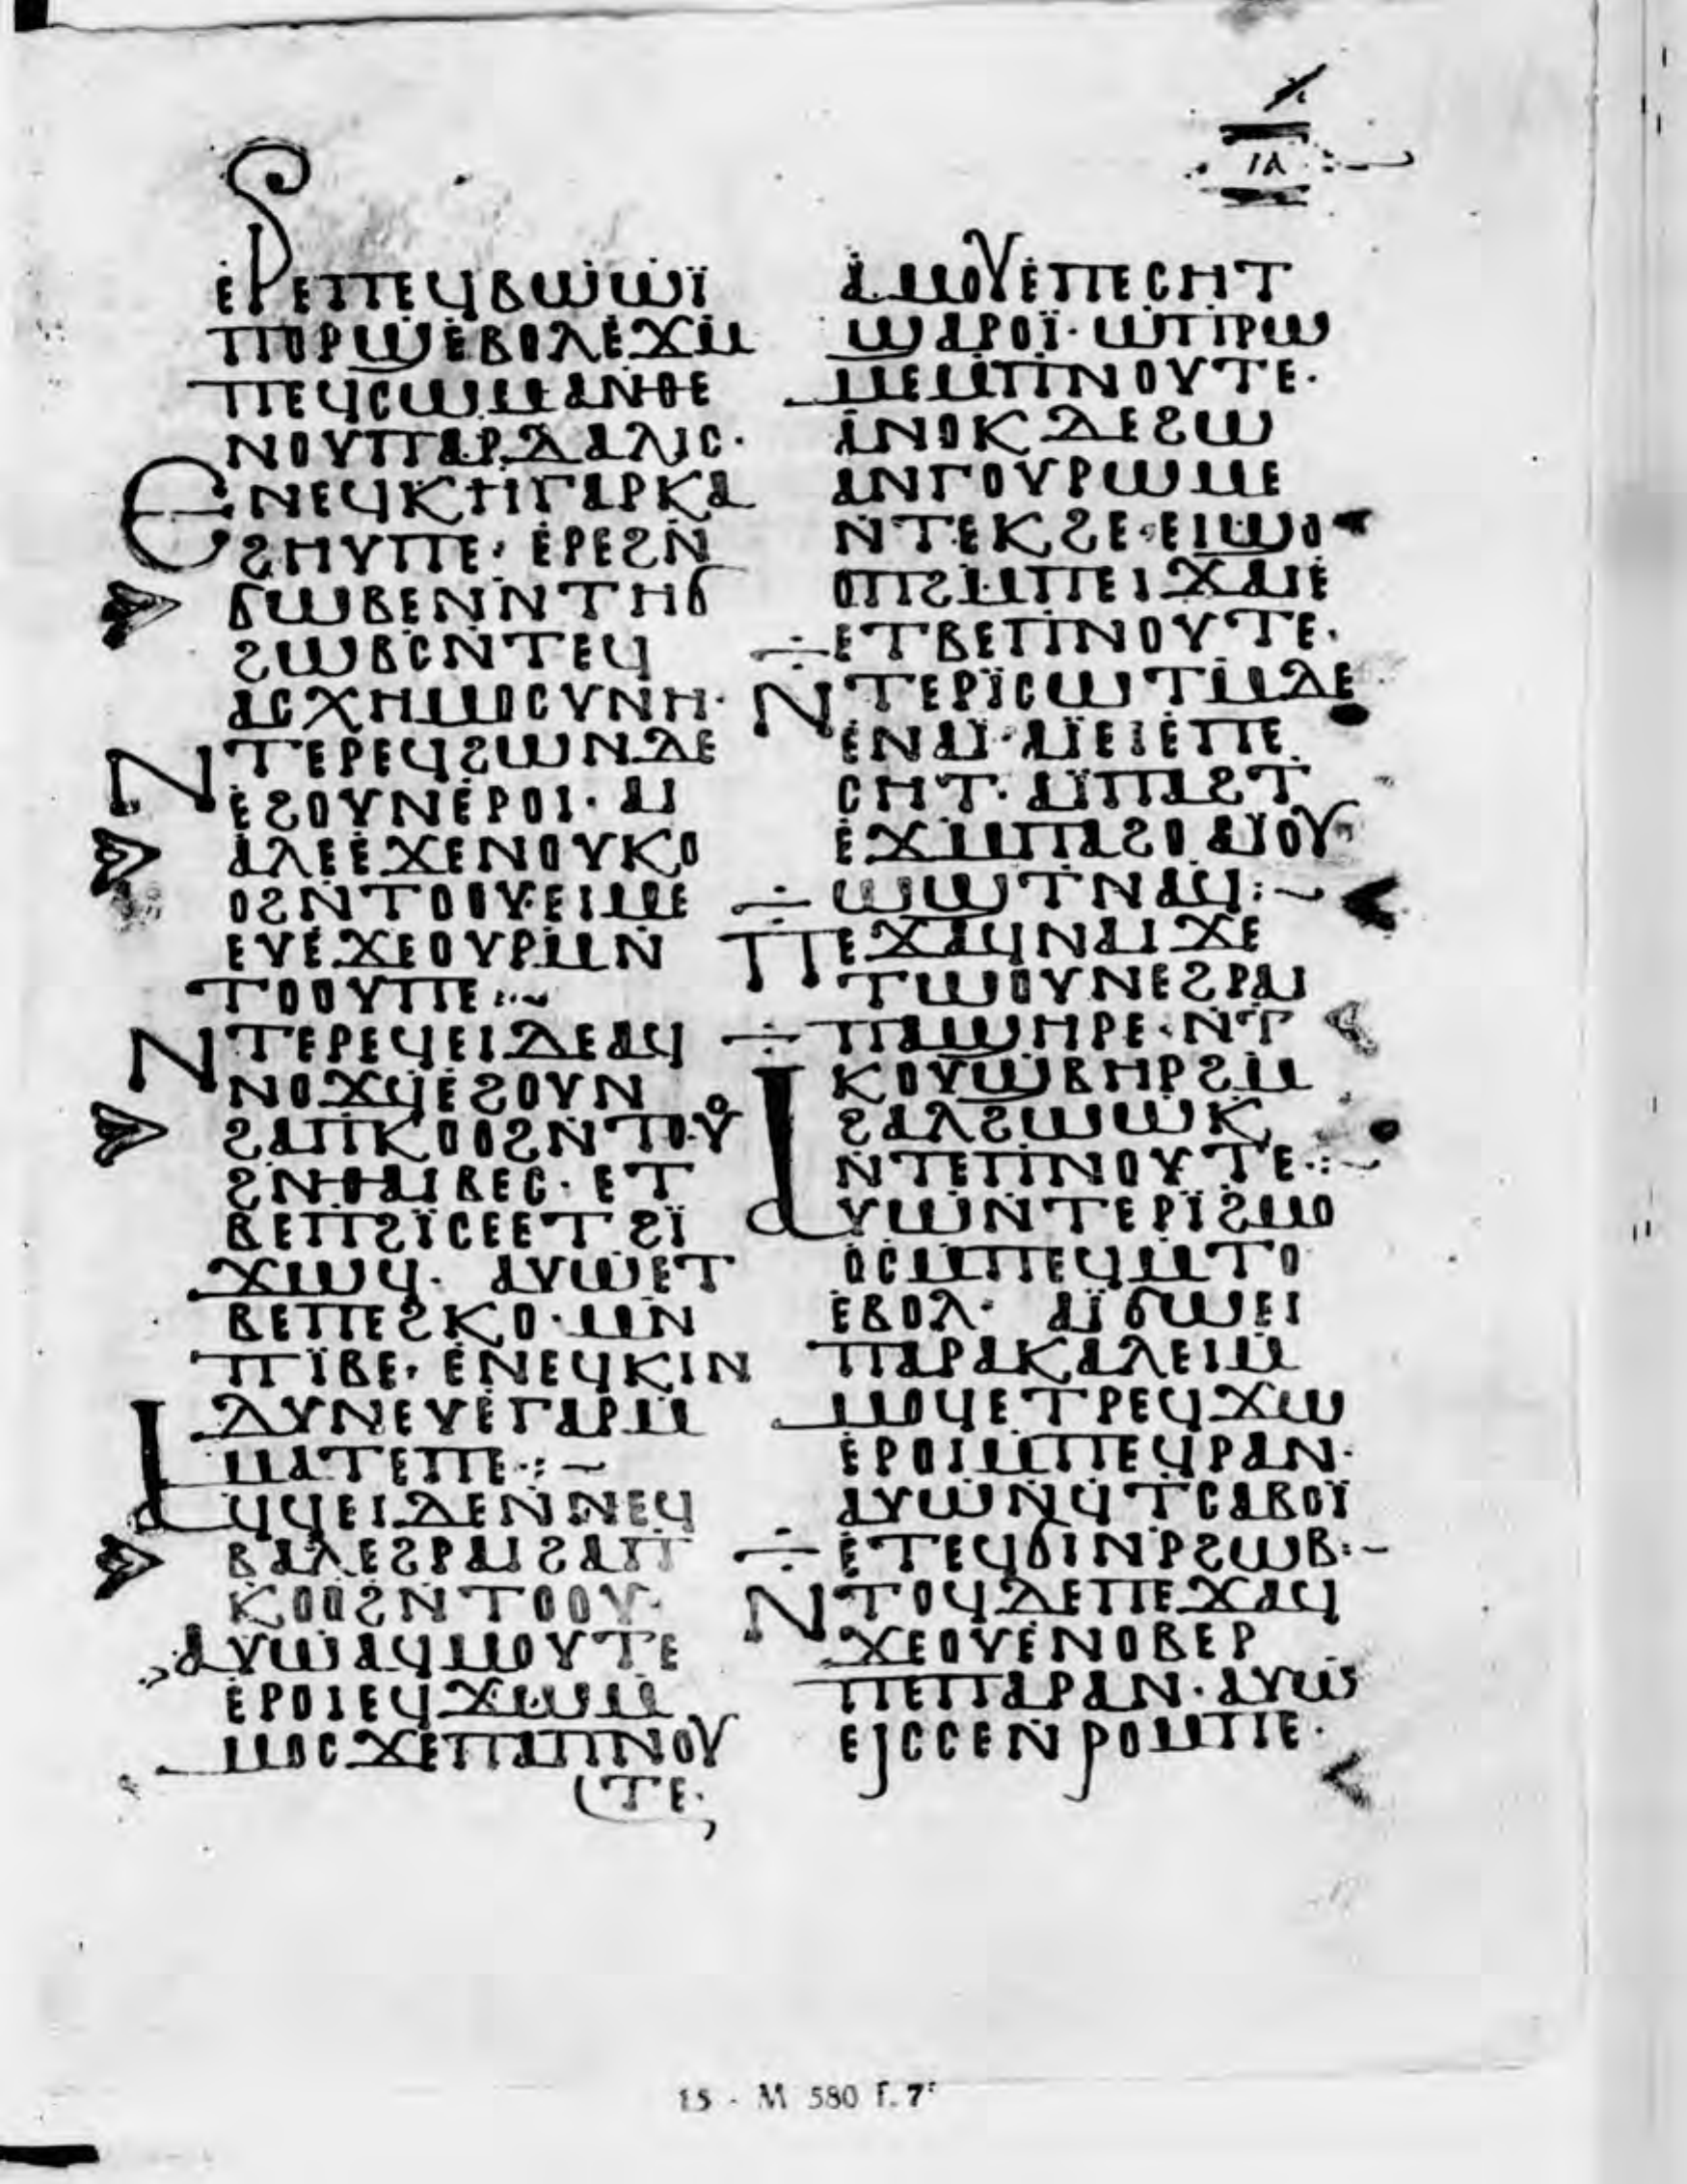 ⲓⲁ
ⲉⲣⲉⲡⲉϥⲃⲱⲱⲓ̈
ⲡⲟⲣϣⲉⲃⲟⲗⲉϫⲙ
ⲡⲉϥⲥⲱⲙⲁⲛⲑⲉ
ⲛⲟⲩⲡⲁⲣⲇⲁⲗⲓⲥ·
ⲉⲛⲉϥⲕⲏⲅⲁⲣⲕⲁ
ϩⲏⲩⲡⲉ· ⲉⲣⲉϩⲛ
ϭⲱⲃⲉⲛⲛⲧⲏϭ
ϩⲱⲃⲥⲛⲧⲉϥ
ⲁⲥⲭⲏⲙⲟⲥⲩⲛⲏ·
ⲛⲧⲉⲣⲉϥϩⲱⲛⲇⲉ
ⲉϩⲟⲩⲛⲉⲣⲟⲓ· ⲁⲓ
ⲁⲗⲉⲉϫⲉⲛⲟⲩⲕⲟ
ⲟϩⲛⲧⲟⲟⲩ·ⲉⲓⲙⲉ
ⲉⲩⲉϫⲉⲟⲩⲣⲙⲛ
ⲧⲟⲟⲩⲡⲉ:~
ⲛⲧⲉⲣⲉϥⲉⲓⲇⲉⲁϥ
ⲛⲟϫϥⲉϩⲟⲩⲛ
ϩⲁⲡⲕⲟⲟϩⲛⲧⲟⲟⲩ
ϩⲛⲑⲁⲓⲃⲉⲥ· ⲉⲧ
ⲃⲉⲡϩⲓ̈ⲥⲉⲉⲧϩⲓ̈
ϫⲱϥ· ⲁⲩⲱⲉⲧ
ⲃⲉⲡⲉϩⲕⲟ·ⲙⲛ
ⲡⲓ̈ⲃⲉ· ⲉⲛⲉϥⲕⲓⲛ
ⲇⲩⲛⲉⲩⲉⲅⲁⲣⲙ
ⲙⲁⲧⲉⲡⲉ·:~
ⲁϥϥⲉⲓⲇⲉⲛⲛⲉϥ
ⲃⲁⲗⲉϩⲣⲁⲓϩⲁⲡ
ⲕⲟⲟϩⲛⲧⲟⲟⲩ·
ⲁⲩⲱⲁϥⲙⲟⲩⲧⲉ
ⲉⲣⲟⲓⲉϥϫⲱⲙ
ⲙⲟⲥϫⲉⲡⲁⲡⲛⲟⲩ
ⲧⲉ·
ⲁⲙⲟⲩⲉⲡⲉⲥⲏⲧ
ϣⲁⲣⲟⲓ̈· ⲱⲡⲣⲱ
ⲙⲉⲙⲡⲛⲟⲩⲧⲉ·
ⲁⲛⲟⲕⲇⲉϩⲱ
ⲁⲛⲅⲟⲩⲣⲱⲙⲉ
ⲛⲧⲉⲕϩⲉ·ⲉⲓϣⲟ
ⲟⲡϩⲙⲡⲉⲓϫⲁⲓⲉ
ⲉⲧⲃⲉⲡⲛⲟⲩⲧⲉ·
ⲛⲧⲉⲣⲓ̈ⲥⲱⲧⲙⲇⲉ
ⲉⲛⲁⲓ̈·ⲁⲓ̈ⲉⲓⲉⲡⲉ
ⲥⲏⲧ· ⲁⲓ̈ⲡⲁϩⲧ
ⲉϫⲙⲡⲁϩⲟ ⲁⲓ̈ⲟⲩ
ⲱϣⲧⲛⲁϥ:~
ⲡⲉϫⲁϥⲛⲁⲓϫⲉ
ⲧⲱⲟⲩⲛⲉϩⲣⲁⲓ
ⲡⲁϣⲏⲣⲉ·ⲛⲧ
ⲕⲟⲩϣⲃⲏⲣϩⲙ
ϩⲁⲗϩⲱⲱⲕ
ⲛⲧⲉⲡⲛⲟⲩⲧⲉ·:~
ⲁⲩⲱⲛⲧⲉⲣⲓ̈ϩⲙⲟ
ⲟⲥⲙⲡⲉϥⲙⲧⲟ
ⲉⲃⲟⲗ· ⲁⲓ̈ϭⲱⲉⲓ
ⲡⲁⲣⲁⲕⲁⲗⲉⲓⲙ
ⲙⲟϥⲉⲧⲣⲉϥϫⲱ
ⲉⲣⲟⲓⲙⲡⲉϥⲣⲁⲛ·
ⲁⲩⲱⲛϥⲧⲥⲁⲃⲟⲓ̈
ⲉⲧⲉϥϭⲓⲛⲣϩⲱⲃ:~
ⲛⲧⲟϥⲇⲉⲡⲉϫⲁϥ
ϫⲉⲟⲩⲉⲛⲟⲃⲉⲣ
ⲡⲉⲡⲁⲣⲁⲛ·ⲁⲩⲱ
ⲉⲓⲥⲥⲉⲛⲣⲟⲙⲡⲉ·
15 - M 580 f. 7ʳ